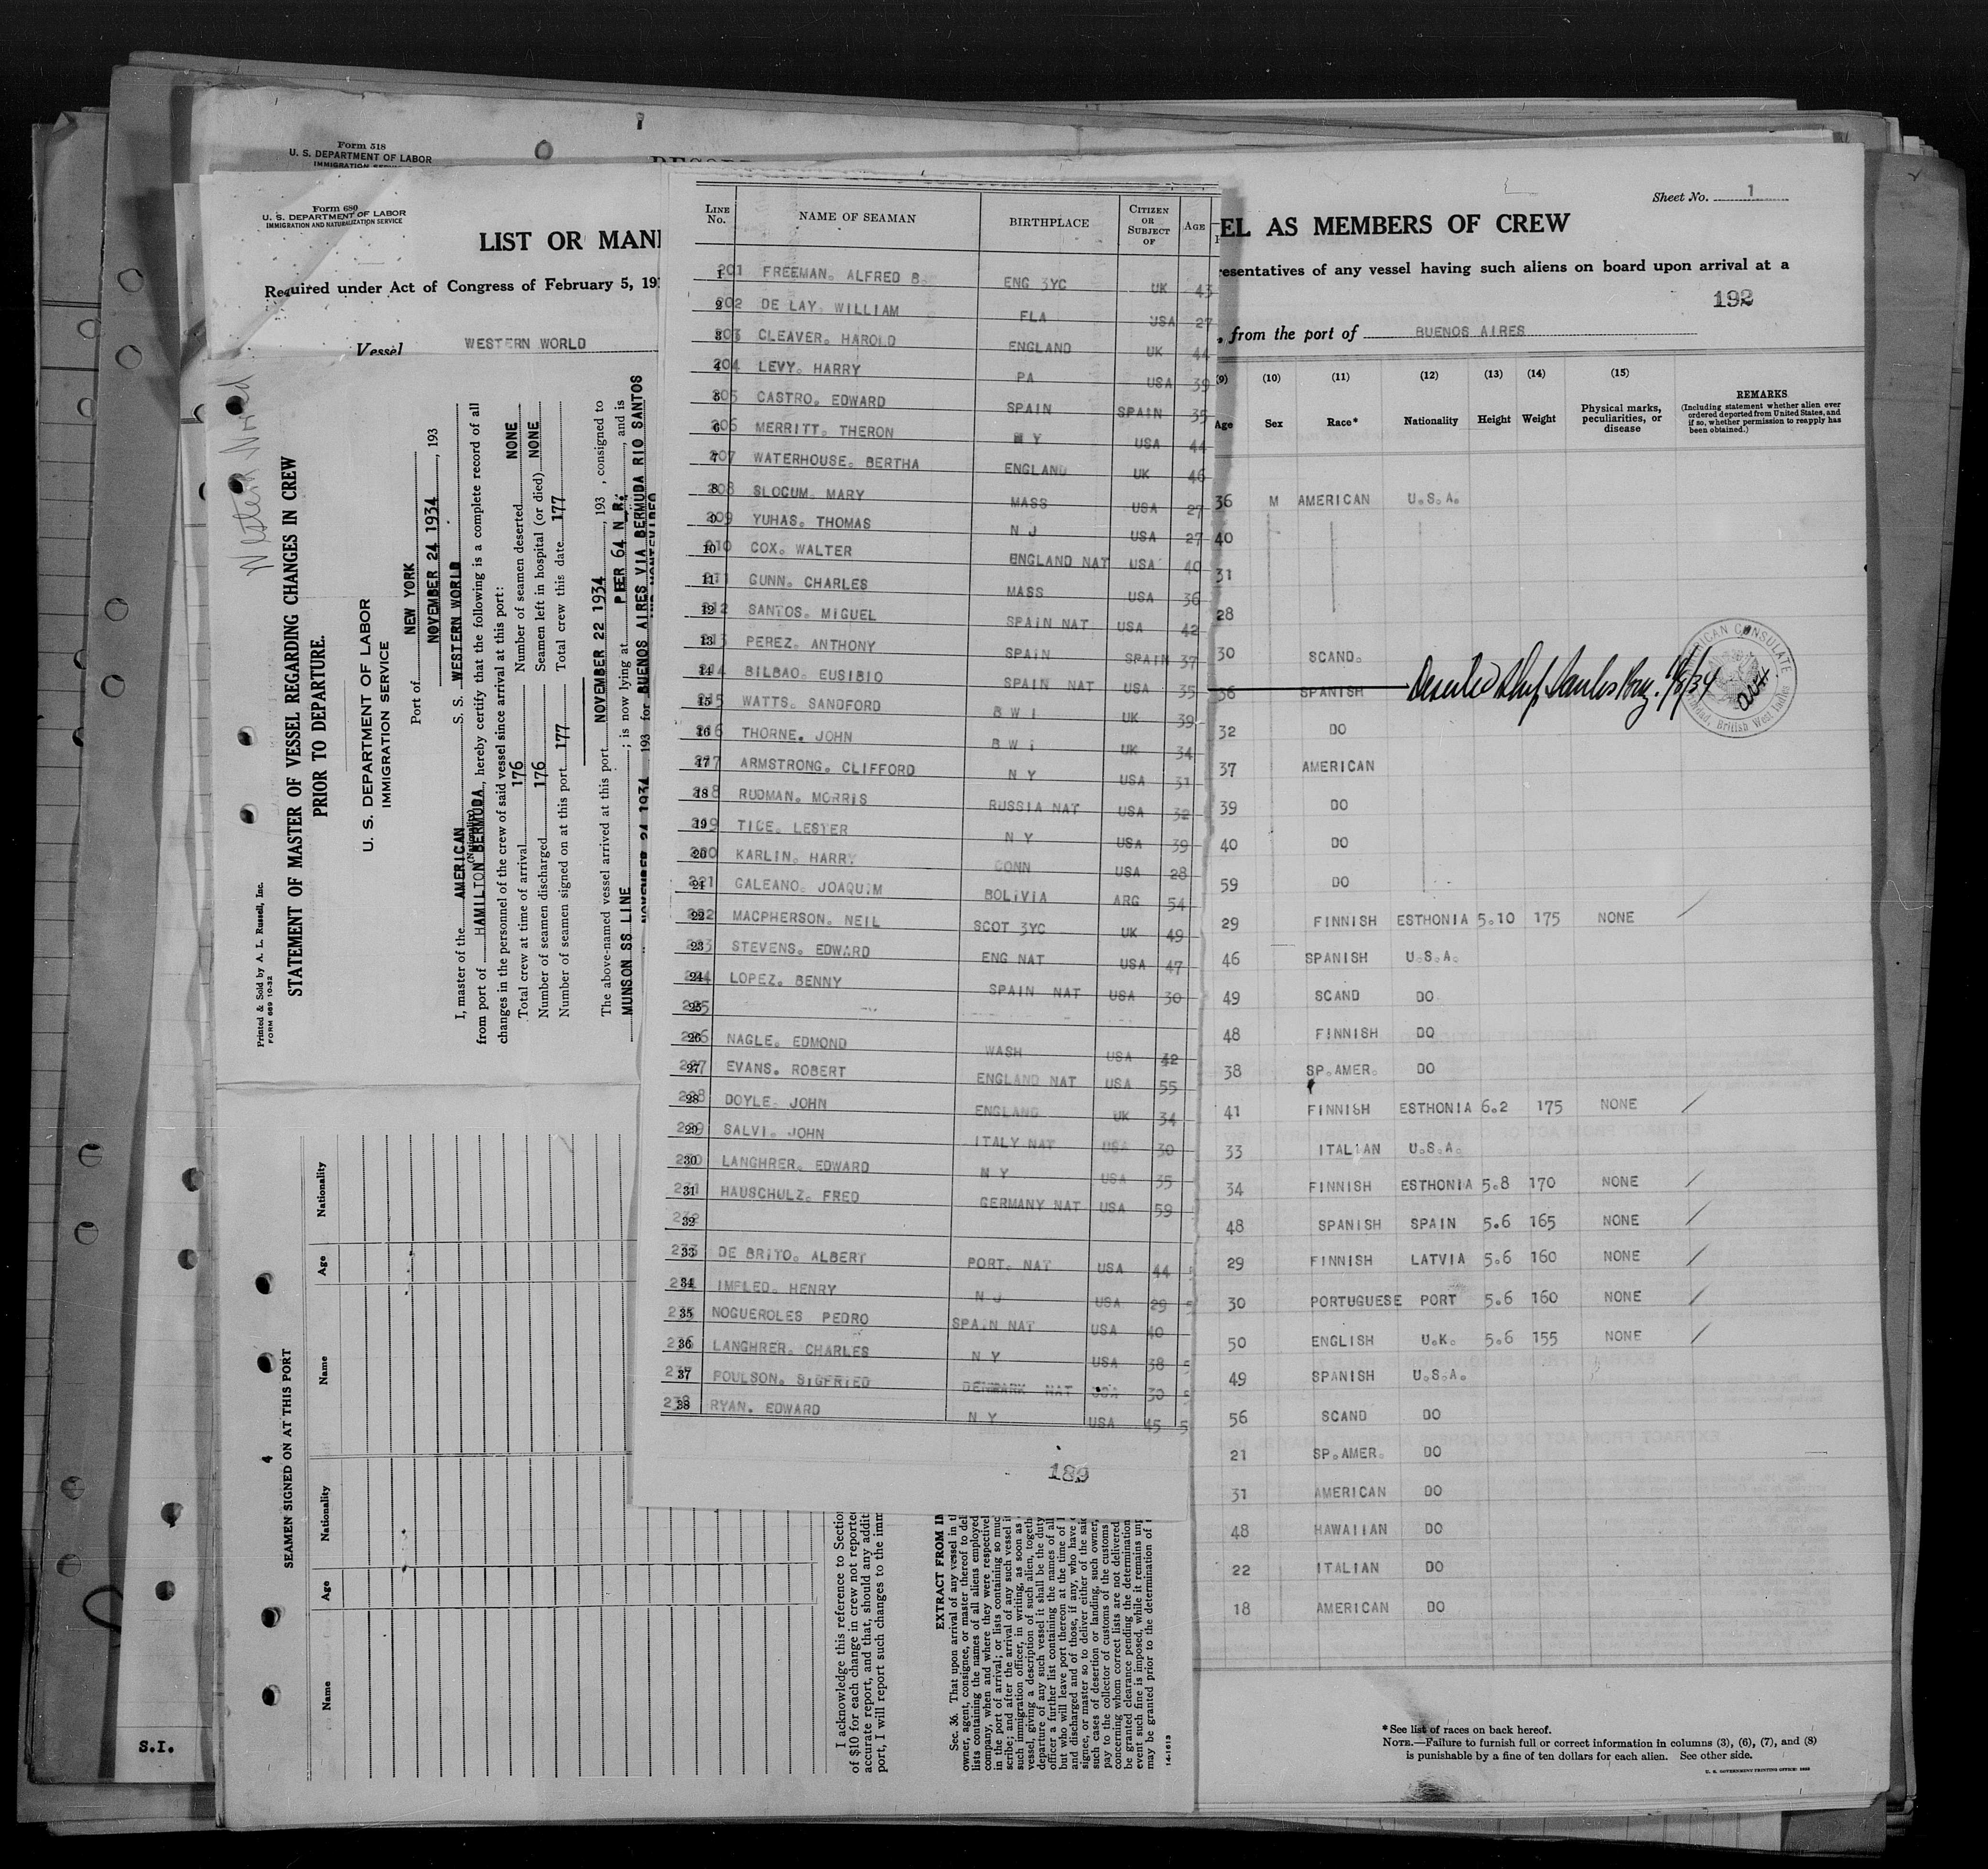 Form 518
U. S. DEPARTMENT OF LABOR
Form 680
U. S. DEPARTMENT OF LABOR
IMMIGRATION AND NATURALIZATION SERVICE
LIST OR MANI
Required under Act of Congress of February 5, 19
Vessel WESTERN WORLD
Western World
Printed & Sold by A. L. Russell, Inc.
FORM 689 10-32
STATEMENT OF MASTER OF VESSEL REGARDING CHANGES IN CREW
PRIOR TO DEPARTURE.
U. S. DEPARTMENT OF LABOR
IMMIGRATION SERVICE
Port of NEW YORK
NOVEMBER 24 1934, 193
I, master of the AMERICAN S. S. WESTERN WORLD
(Nationality)
from port of HAMILTON BERMUDA, hereby certify that the following is a complete record of all
changes in the personnel of the crew of said vessel since arrival at this port:
Total crew at time of arrival 176 Number of seamen deserted NONE
Number of seamen discharged 176 Seamen left in hospital (or died) NONE
Number of seamen signed on at this port 177 Total crew this date 177
The above-named vessel arrived at this port NOVEMBER 22 1934, 193 , consigned to
MUNSON SS LINE ; is now lying at PEER 64 N R., and is
NOVEMBER 24 1934 193 for BUENOS AIRES VIA BERMUDA RIO SANTOS
AND MONTEVIDEO
SEAMEN SIGNED ON AT THIS PORT 4
Name Age Nationality Name Age Nationality
I acknowledge this reference to Section
of $10 for each change in crew not reported
accurate report, and that, should any additi
port, I will report such changes to the imm
EXTRACT FROM IM
Sec. 36. That upon arrival of any vessel in t
owner, agent, consignee, or master thereof to del
lists containing the names of all aliens employed
company, when and where they were respectivel
in the port of arrival; or lists containing so muc
scribe; and after the arrival of any such vessel i
such immigration officer, in writing, as soon as
vessel, giving a description of such alien, togeth
departure of any such vessel it shall be the duty
officer a further list containing the names of all
but who will leave port thereon at the time of
and discharged and of those, if any, who have
signee, or master so to deliver either of the said
such cases of desertion or landing, such owner,
pay to the collector of customs of the customs
concerning whom correct lists are not delivered
be granted clearance pending the determination
event such fine is imposed, while it remains unp
may be granted prior to the determination of
14-1613
S.I.
LINE No. NAME OF SEAMAN BIRTHPLACE CITIZEN OR SUBJECT OF AGE
201 1 FREEMAN. ALFRED B. ENG 3YC UK 43
202 2 DE LAY. WILLIAM FLA USA 27
203 3 CLEAVER. HAROLD ENGLAND UK 44
204 4 LEVY. HARRY PA USA 39
205 5 CASTRO. EDWARD SPAIN SPAIN 35
206 6 MERRITT. THERON N Y USA 44
207 7 WATERHOUSE. BERTHA ENGLAND UK 46
208 8 SLOCUM. MARY MASS USA 27
209 9 YUHAS. THOMAS N J USA 27
210 10 COX. WALTER ENGLAND NAT USA 40
211 11 GUNN. CHARLES MASS USA 36
212 12 SANTOS. MIGUEL SPAIN NAT USA 42
213 13 PEREZ. ANTHONY SPAIN SPAIN 37
214 14 BILBAO. EUSIBIO SPAIN NAT USA 35
215 15 WATTS. SANDFORD B W I UK 39
216 16 THORNE. JOHN B W I UK 34
217 17 ARMSTRONG. CLIFFORD N Y USA 31
218 18 RUDMAN. MORRIS RUSSIA NAT USA 32
219 19 TICE. LESTER N Y USA 39
220 20 KARLIN. HARRY CONN USA 28
221 21 GALEANO. JOAQUIM BOLIVIA ARG 54
222 22 MACPHERSON. NEIL SCOT 3YC UK 49
223 23 STEVENS. EDWARD ENG NAT USA 47
224 24 LOPEZ. BENNY SPAIN NAT USA 30
225 25
226 26 NAGLE. EDMOND WASH USA 42
227 27 EVANS. ROBERT ENGLAND NAT USA 55
228 28 DOYLE. JOHN ENGLAND UK 34
229 29 SALVI. JOHN ITALY NAT USA 30
230 30 LANGHRER. EDWARD N Y USA 35
231 31 HAUSCHULZ. FRED GERMANY NAT USA 59
232 32
233 33 DE BRITO. ALBERT PORT. NAT USA 44
234 34 IMFLED. HENRY N J USA 29 5
235 35 NOGUEROLES PEDRO SPAIN NAT USA 40
236 36 LANGHRER. CHARLES N Y USA 38 5
237 37 POULSON. SIGFRIED DENMARK NAT USA 30 5
238 38 RYAN. EDWARD N Y USA 45 5
189
Sheet No. 1
EL AS MEMBERS OF CREW
resentatives of any vessel having such aliens on board upon arrival at a
192
, from the port of BUENOS AIRES
(9) (10) (11) (12) (13) (14) (15)
Age Sex Race* Nationality Height Weight Physical marks, peculiarities, or disease
REMARKS
(Including statement whether alien ever ordered deported from United States, and if so, whether permission to reapply has been obtained.)
36 M AMERICAN U.S.A.
40
31
28
30 SCAND.
36 SPANISH Deserted Ship Santos Braz. 11/8/34
AMERICAN CONSULATE
Trinidad, British West Indies
32 DO
37 AMERICAN
39 DO
40 DO
59 DO
29 FINNISH ESTHONIA 5.10 175 NONE /
46 SPANISH U.S.A.
49 SCAND DO
48 FINNISH DO
38 SP.AMER. DO
41 FINNISH ESTHONIA 6.2 175 NONE /
33 ITALIAN U.S.A.
34 FINNISH ESTHONIA 5.8 170 NONE /
48 SPANISH SPAIN 5.6 165 NONE /
29 FINNISH LATVIA 5.6 160 NONE /
30 PORTUGUESE PORT 5.6 160 NONE /
50 ENGLISH U.K. 5.6 155 NONE /
49 SPANISH U.S.A.
56 SCAND DO
21 SP.AMER. DO
31 AMERICAN DO
48 HAWAIIAN DO
22 ITALIAN DO
18 AMERICAN DO
*See list of races on back hereof.
NOTE.—Failure to furnish full or correct information in columns (3), (6), (7), and (8)
is punishable by a fine of ten dollars for each alien. See other side.
U. S. GOVERNMENT PRINTING OFFICE: